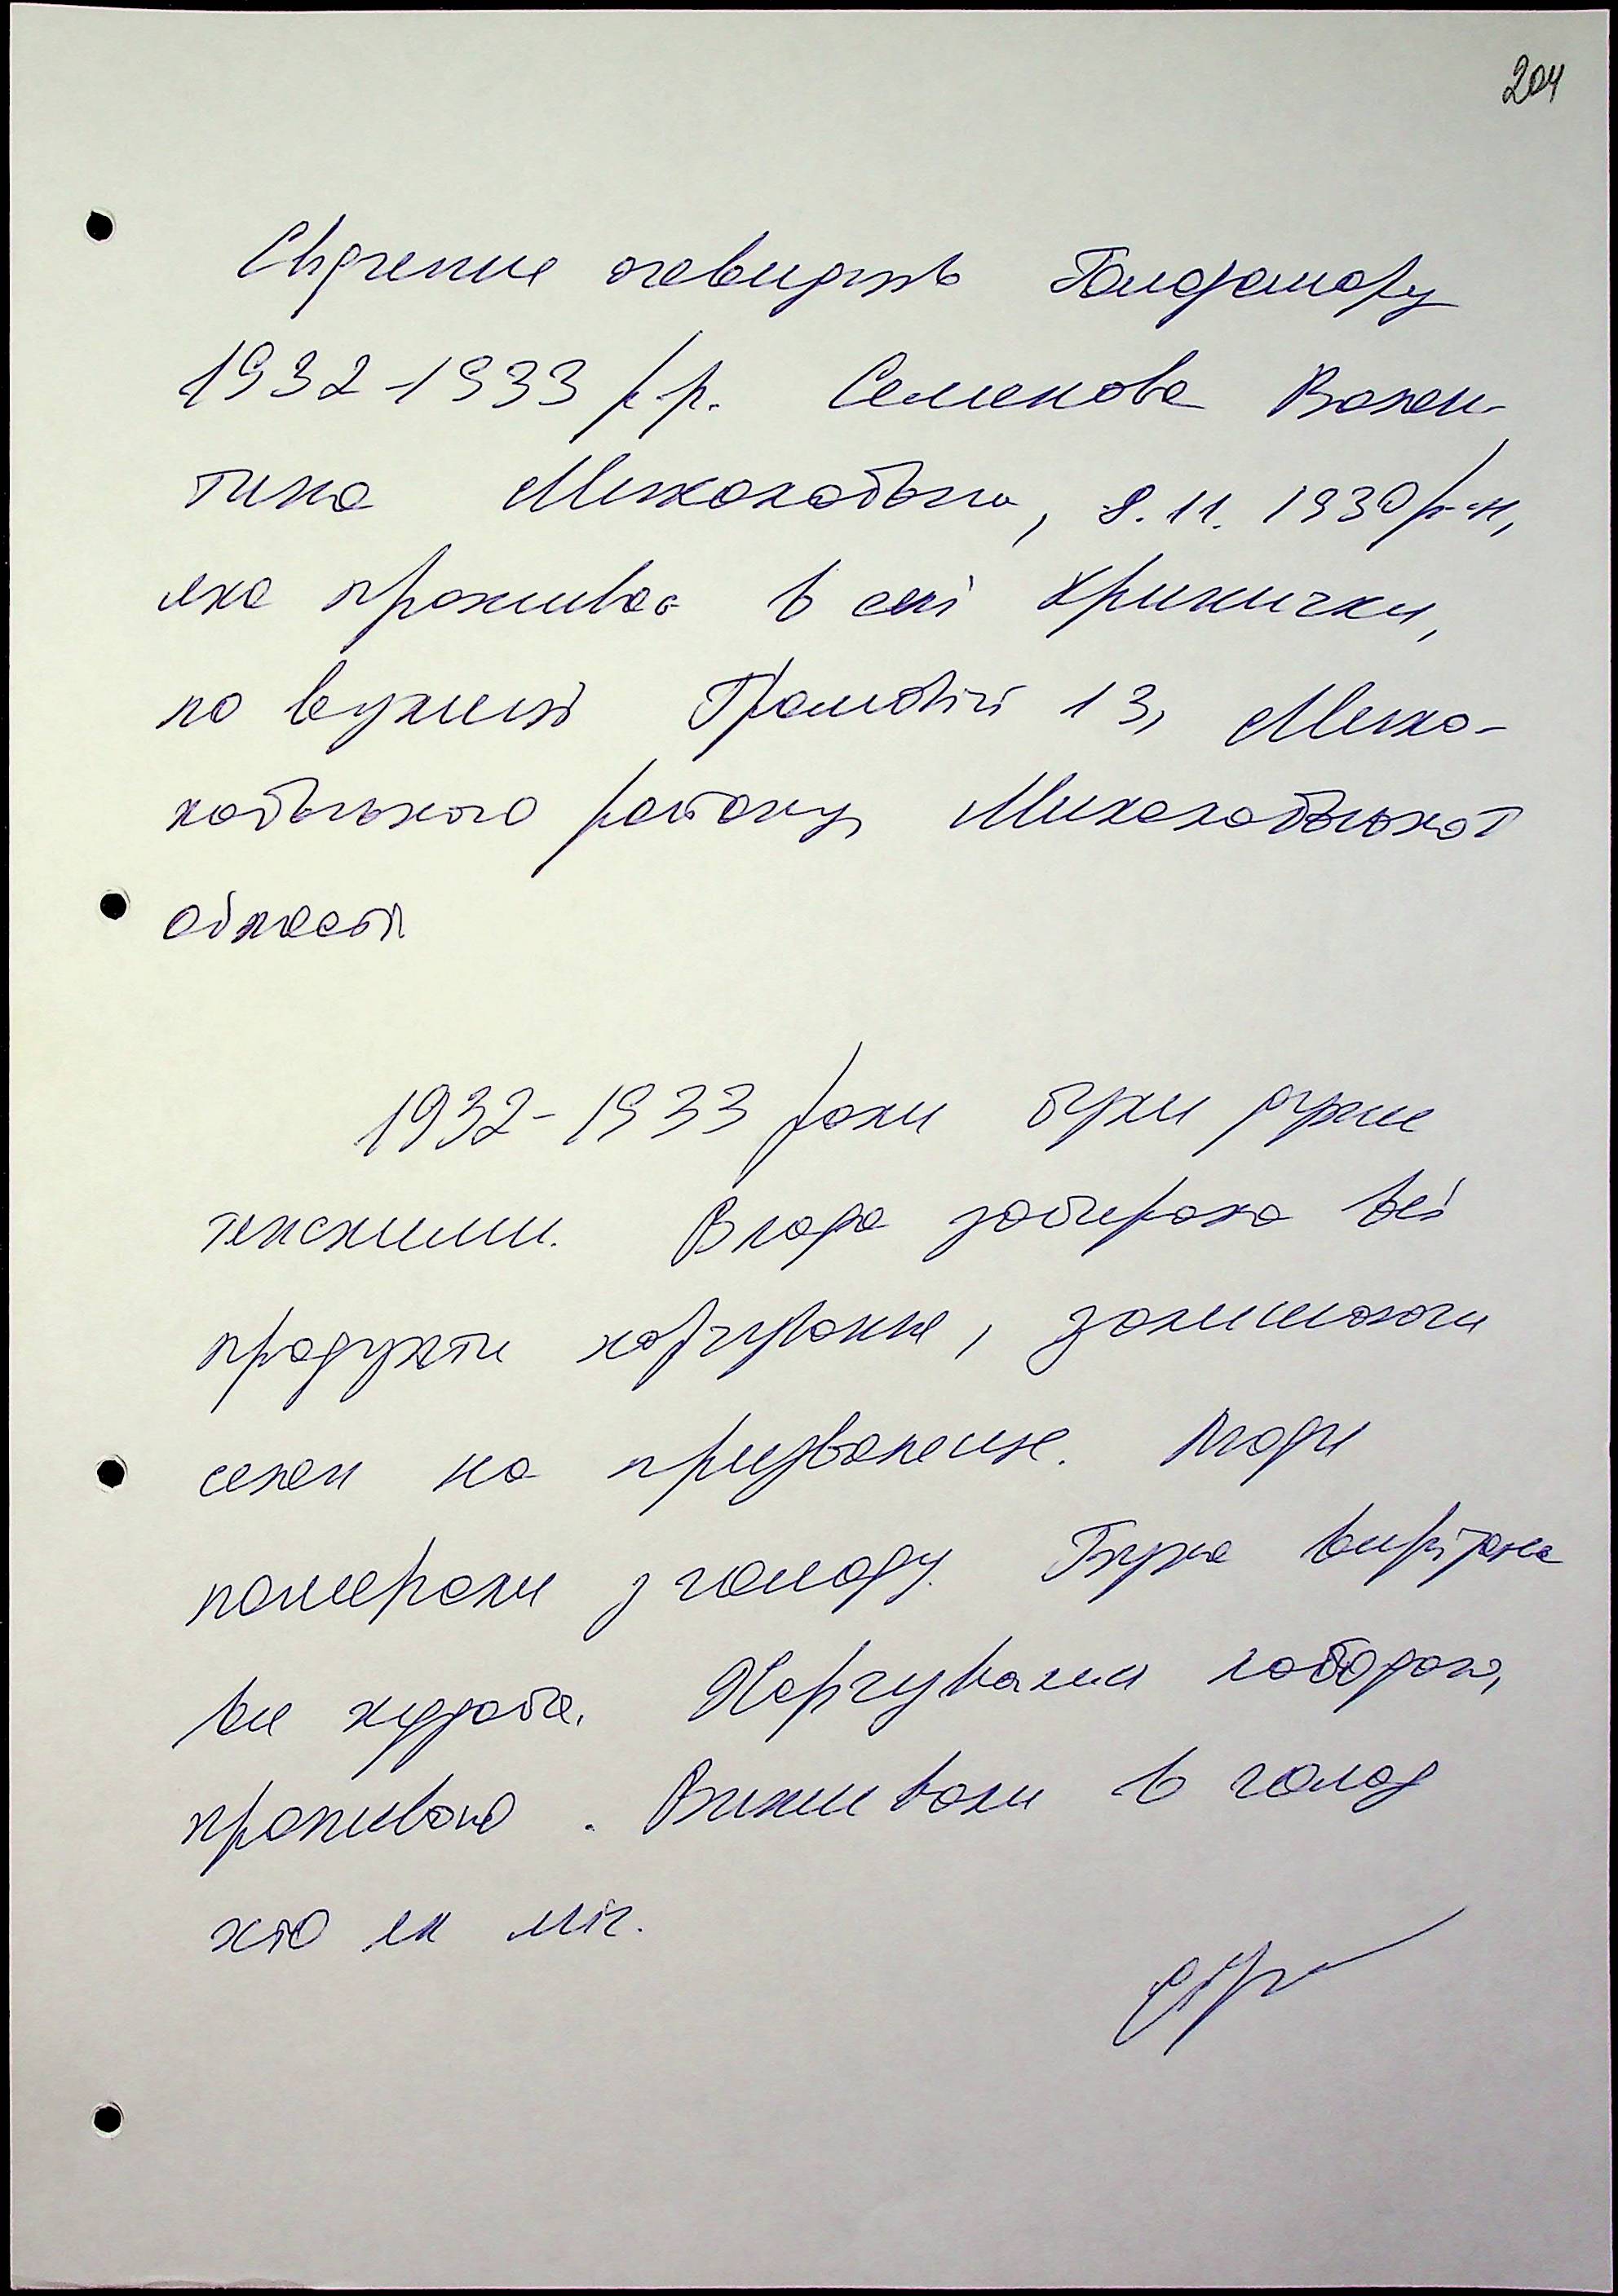 204
Свідчення очевидців Голодомору
1932-1933 р.р. Семенова Вален-
тина Миколаївна, 8.11.1930 р-н,
яка проживає в селі Кринички,
по вулиці 13, Мико-
лаївського району Миколаївської
області
1932-1933 роки були дуже
тяжкими. Влада забирала всі
продукти харчування, залишаючи
селян на призволяще. Люди
помирали з голоду. Була вирізана
вся худоба. Харчувались лободою,
кропивою. Виживали в голод
хто як міг.